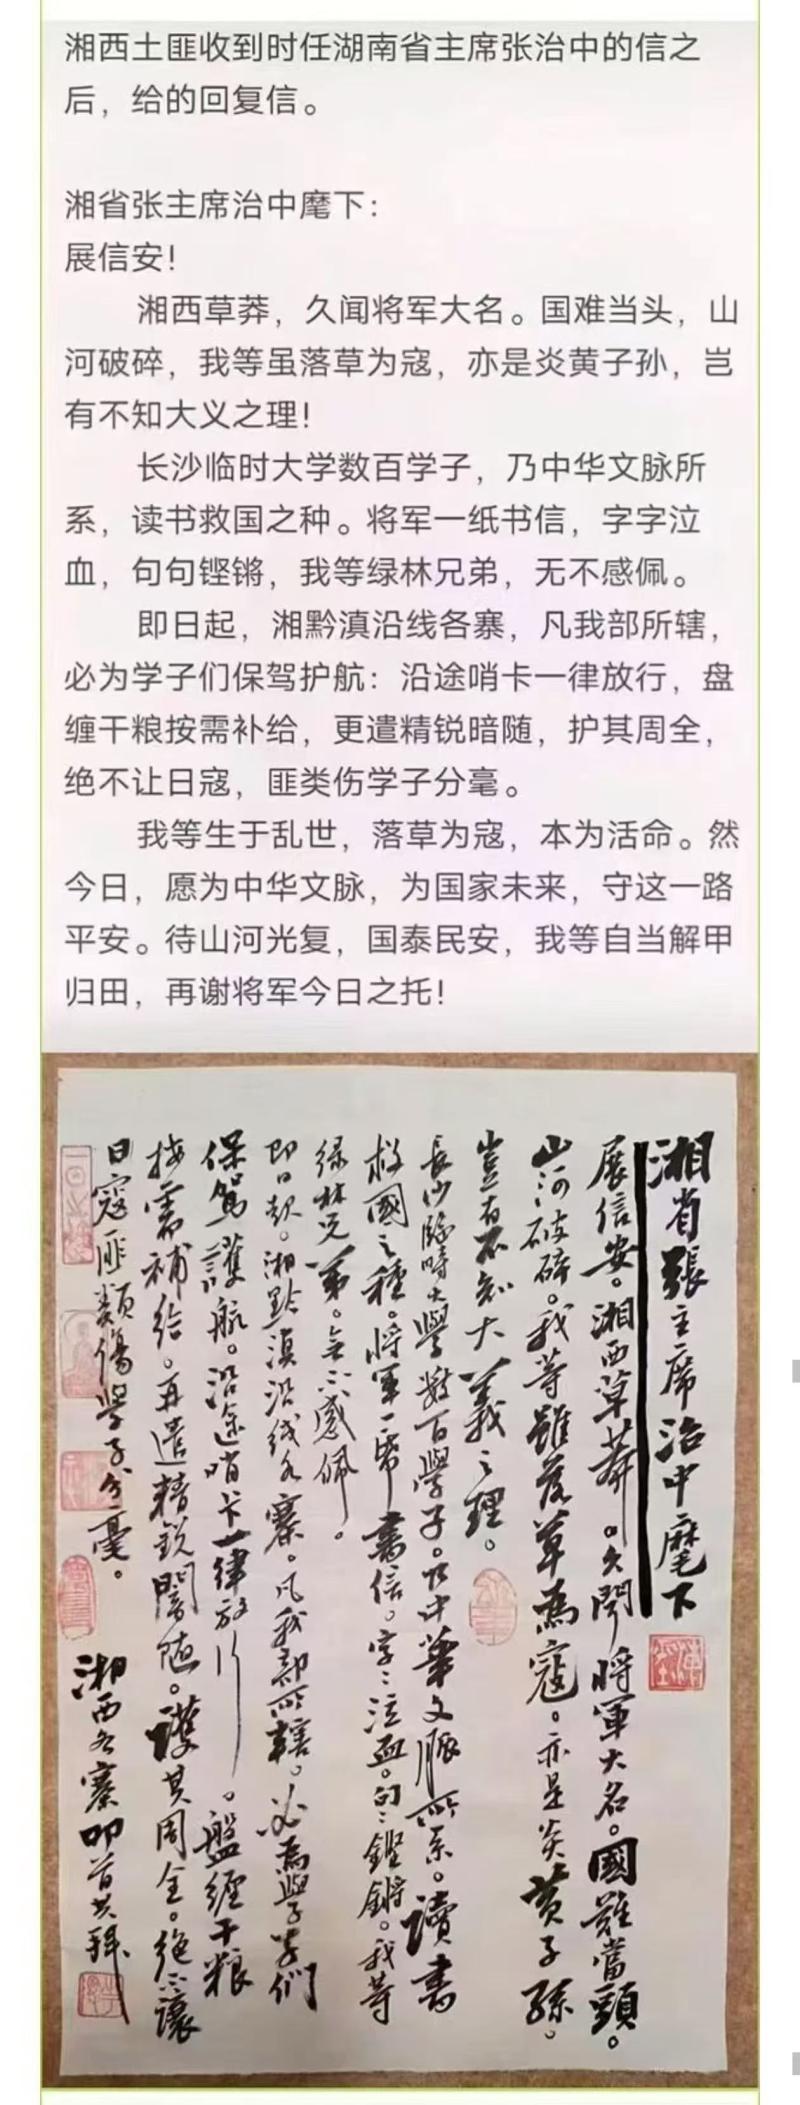 湘西土匪收到时任湖南省主席张治中的信之
后，给的回复信。
湘省张主席治中麾下：
展信安！
湘西草莽，久闻将军大名。国难当头，山
河破碎，我等虽落草为寇，亦是炎黄子孙，岂
有不知大义之理！
长沙临时大学数百学子，乃中华文脉所
系，读书救国之种。将军一纸书信，字字泣
血，句句铿锵，我等绿林兄弟，无不感佩。
即日起，湘黔滇沿线各寨，凡我部所辖，
必为学子们保驾护航：沿途哨卡一律放行，盘
缠干粮按需补给，更遣精锐暗随，护其周全，
绝不让日寇，匪类伤学子分毫。
我等生于乱世，落草为寇，本为活命。然
今日，愿为中华文脉，为国家未来，守这一路
平安。待山河光复，国泰民安，我等自当解甲
归田，再谢将军今日之托！
湘省張主席治中麾下
展信安。湘西草莽。久聞將軍大名。國難當頭。
山河破碎。我等雖落草為寇。亦是炎黃子孫。
豈有不知大義之理。
長沙臨時大學數百學子。乃中華文脈所系。讀書
救國之種。將軍一紙書信。字字泣血。句句鏗鏘。我等
绿林兄弟。無不感佩。
即日起。湘黔滇沿线各寨。凡我部所轄。必為學子們
保駕護航。沿途哨卡一律放行。盤纏干粮
按需補給。再遣精銳闇随。護其周全。絕不讓
日寇匪類傷學子分毫。
湘西各寨叩首共拜